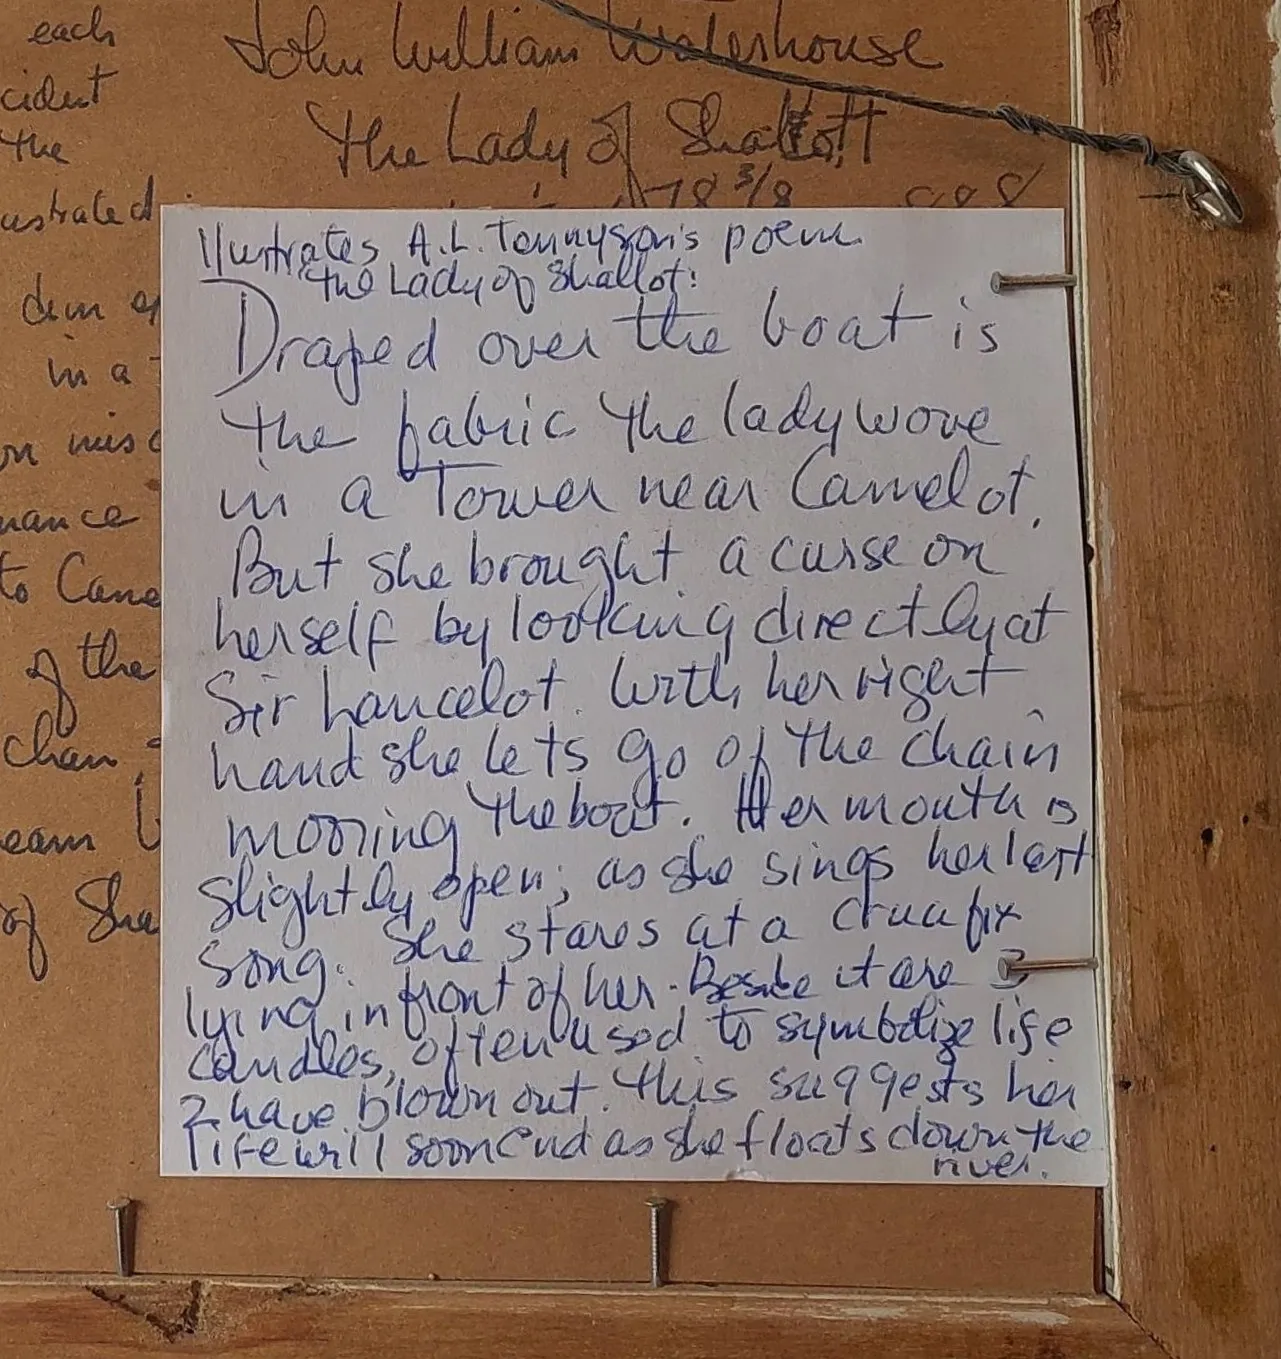 each
cident
the
ustrated
dem of
in a
on misc
mance
to Came
of the
chan
eam
of Sha
John William Waterhouse
The Lady of Shallott
78 3/8
Illustrates A.L. Tennyson's poem
the Lady of Shallot:
Draped over the boat is
the fabric the lady wove
in a Tower near Camelot.
But she brought a curse on
herself by looking directly at
Sir Lancelot. With her right
hand she lets go of the chain
mooring the boat. Her mouth is
slightly open, as she sings her last
song. She stares at a crucifix
lying in front of her. Beside it are 3
candles, often used to symbolize life
2 have blown out. This suggests her
life will soon end as she floats down the
river.